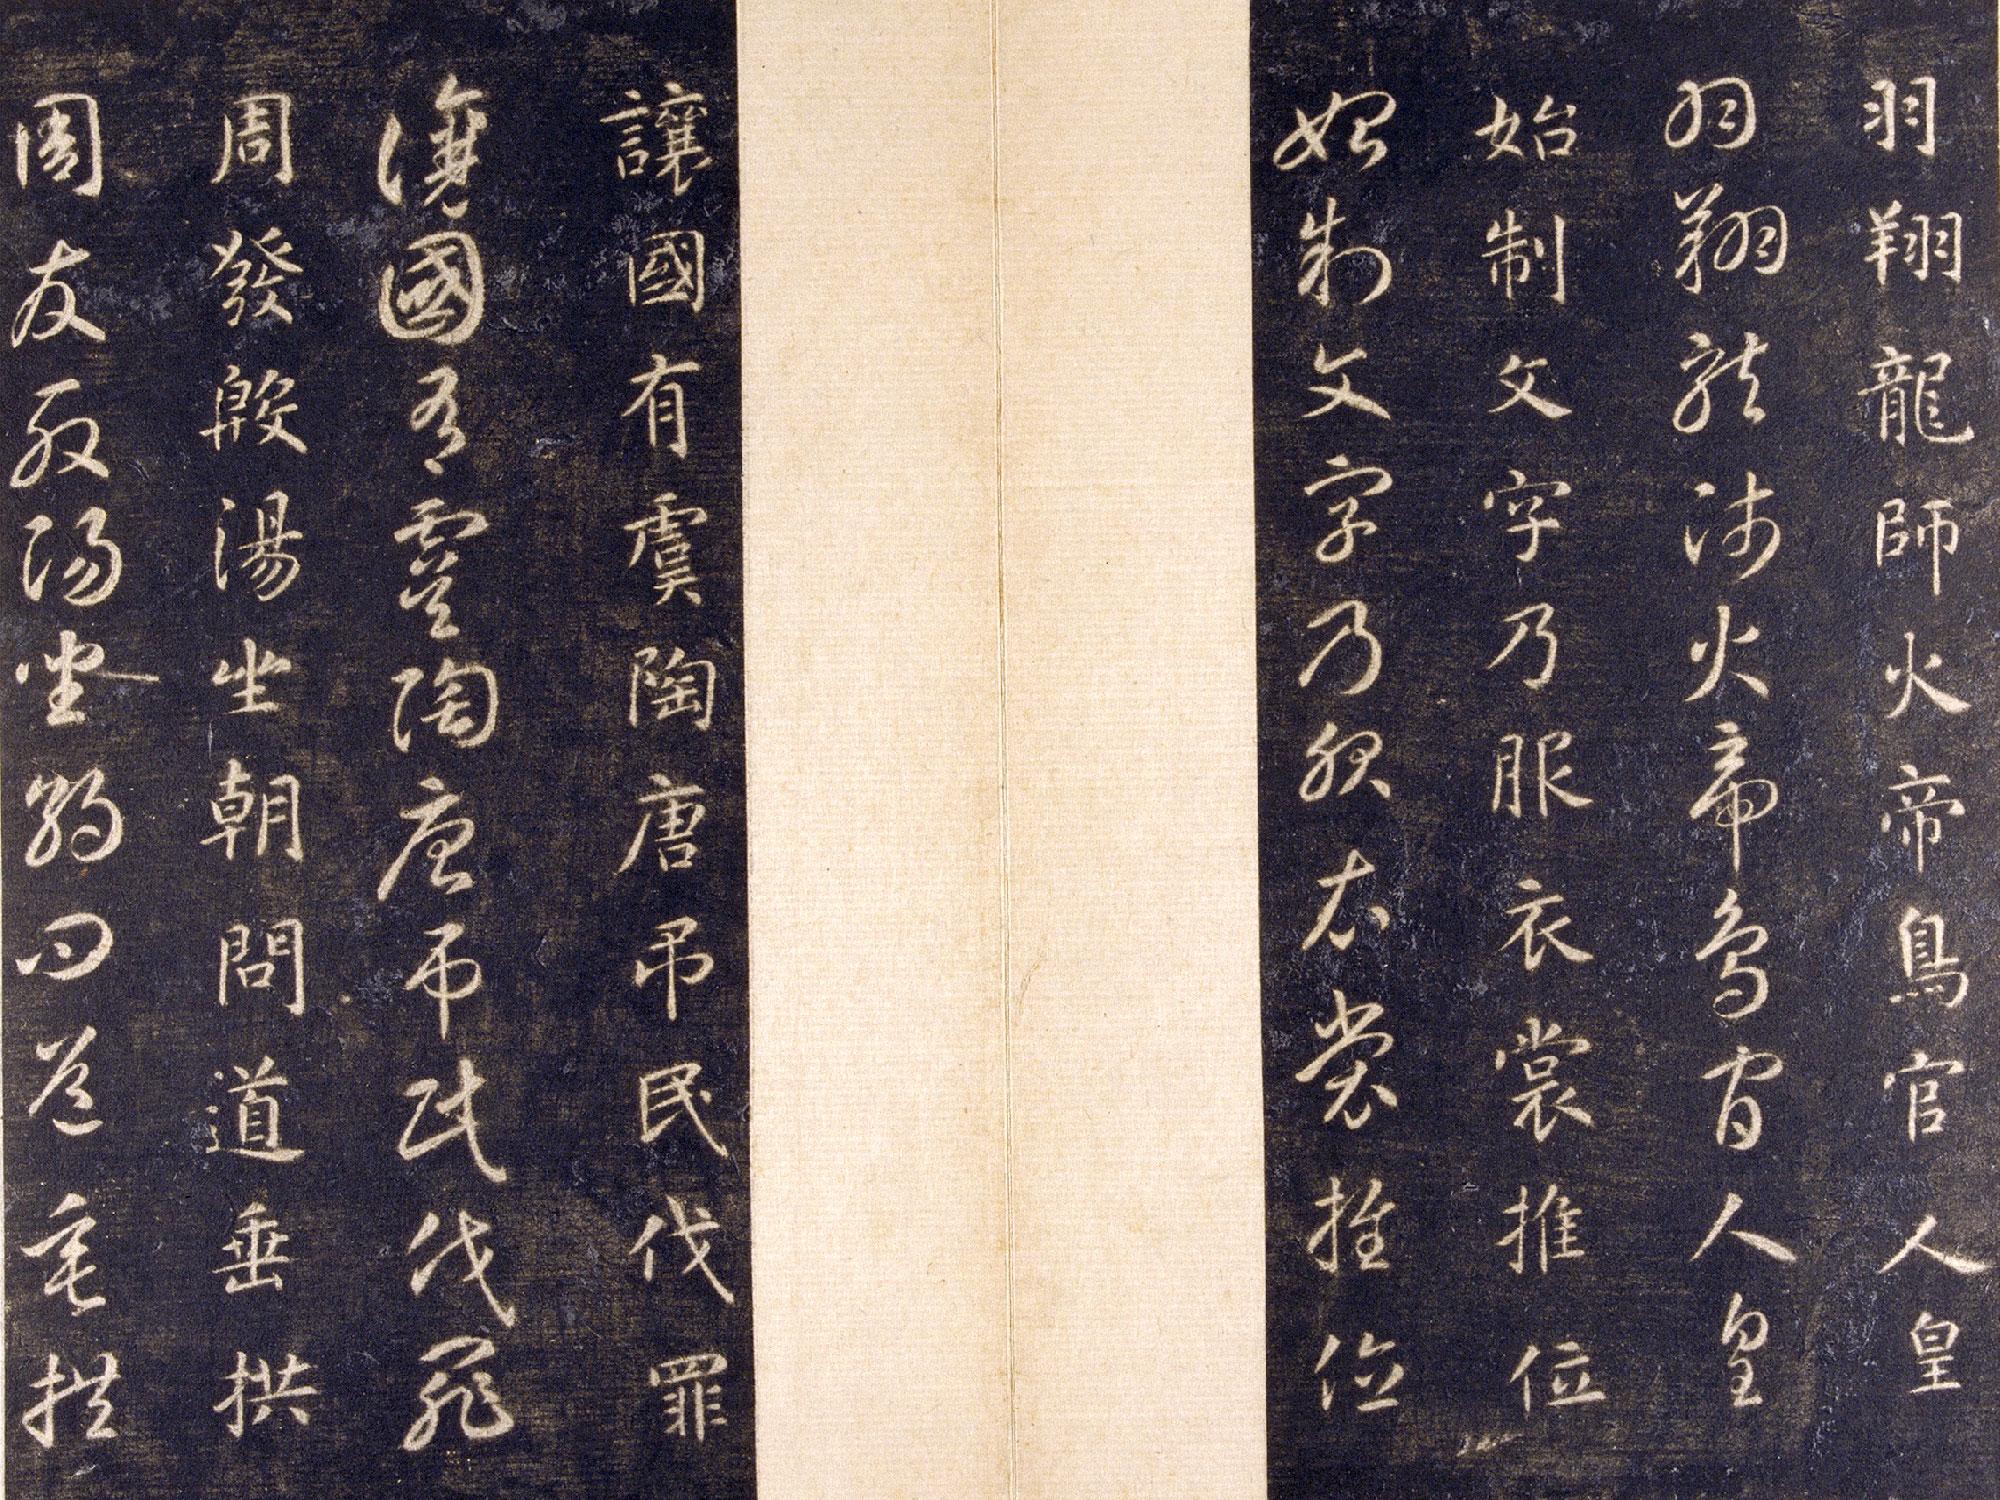 羽翔龍師火帝鳥官人皇
羽翔龍師火帝鳥官人皇
始制文字乃服衣裳推位
始制文字乃服衣裳推位
讓國有虞陶唐吊民伐罪
讓國有虞陶唐吊民伐罪
周發殷湯坐朝問道垂拱
周發殷湯坐朝問道垂拱